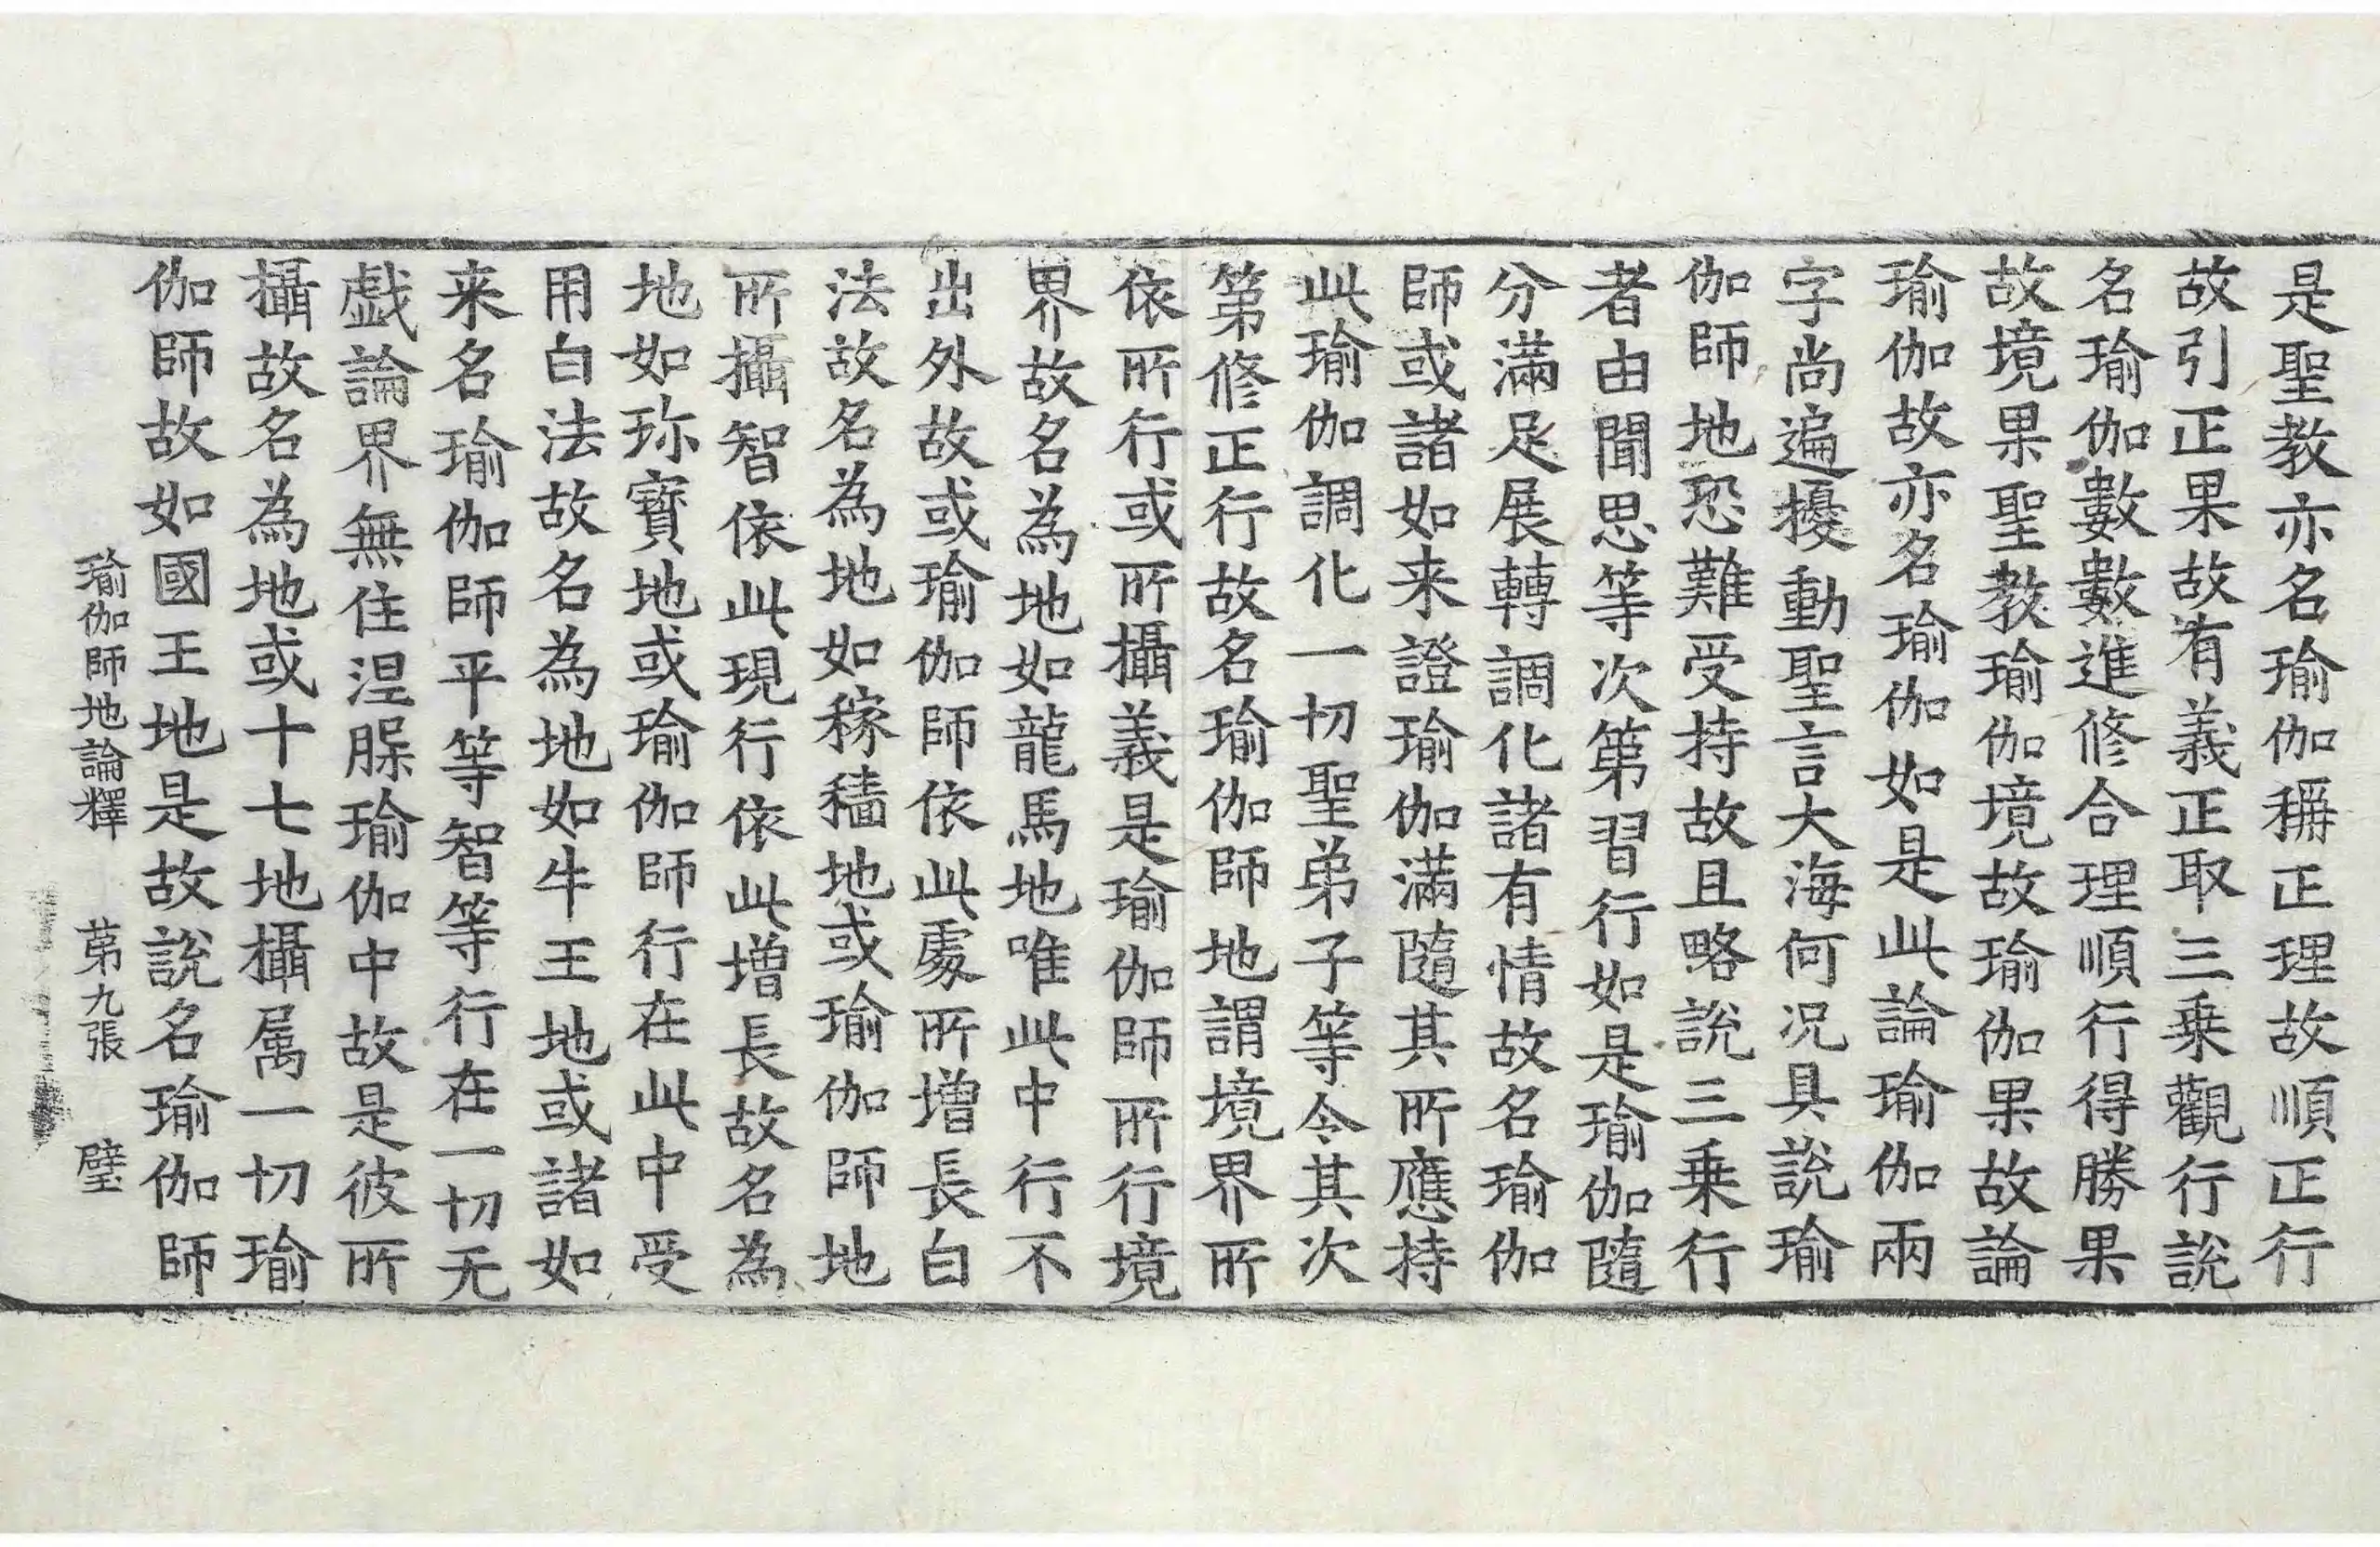 是聖教亦名瑜伽稱正理故順正行
故引正果故有義正取三乗觀行說
名瑜伽數數進修合理順行得勝果
故境果聖教瑜伽境故瑜伽果故論
瑜伽故亦名瑜伽如是此論瑜伽兩
字尚遍擾動聖言大海何况具說瑜
伽師地恐難受持故且略說三乗行
者由聞思等次第習行如是瑜伽隨
分滿足展轉調化諸有情故名瑜伽
師或諸如来證瑜伽滿隨其所應持
此瑜伽調化一切聖弟子等令其次
第修正行故名瑜伽師地謂境界所
依所行或所攝義是瑜伽師所行境
界故名為地如龍馬地唯此中行不
出外故或瑜伽師依此處所增長白
法故名為地如稼穡地或瑜伽師地
所攝智依此現行依此增長故名為
地如珎寶地或瑜伽師行在此中受
用白法故名為地如牛王地或諸如
来名瑜伽師平等智等行在一切无
戱論界無住涅槃瑜伽中故是彼所
攝故名為地或十七地攝属一切瑜
伽師故如國王地是故說名瑜伽師
瑜伽師地論釋 第九張 璧